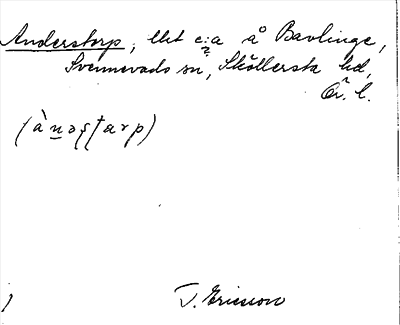 Anderstorp, llt c:a å Bavlinge,
Svennevads sn, Sköllersta hd,
Ör. l.
(ànəʂʈarp)
T. Ericsson